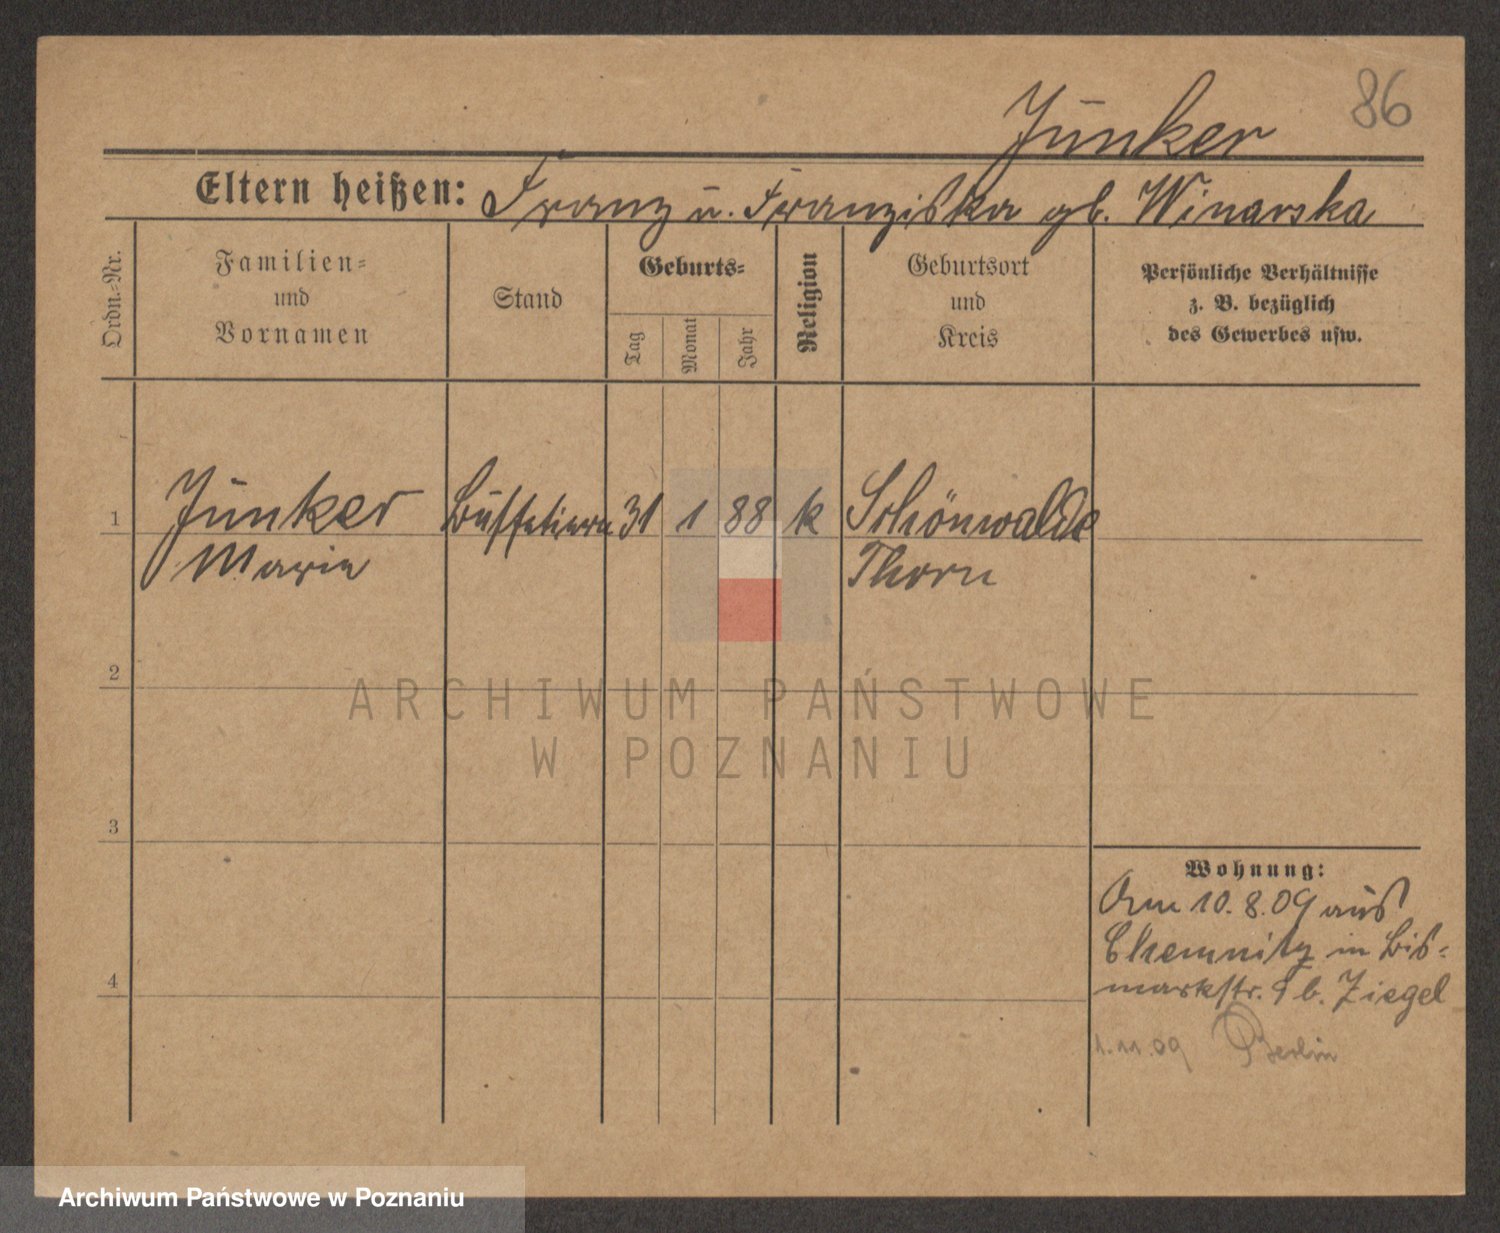 86
Junker
Eltern heißen: Franz u. Franziska gb. Winarska
Ordn.-Nr.
Familien-
und
Vornamen
Stand
Geburts-
Tag
Monat
Jahr
Religion
Geburtsort
und
Kreis
Persönliche Verhältnisse
z. B. bezüglich
des Gewerbes usw.
1 Junker Buffetiere 31 1 88 k Schönwalde
Marie Thorn
2
ARCHIWUM PAŃSTWOWE
W POZNANIU
3
Wohnung:
Am 10.8.09 aus
Chemnitz in Bis-
markstr. 9 b. Ziegel
4
1.11.09 Berlin
Archiwum Państwowe w Poznaniu